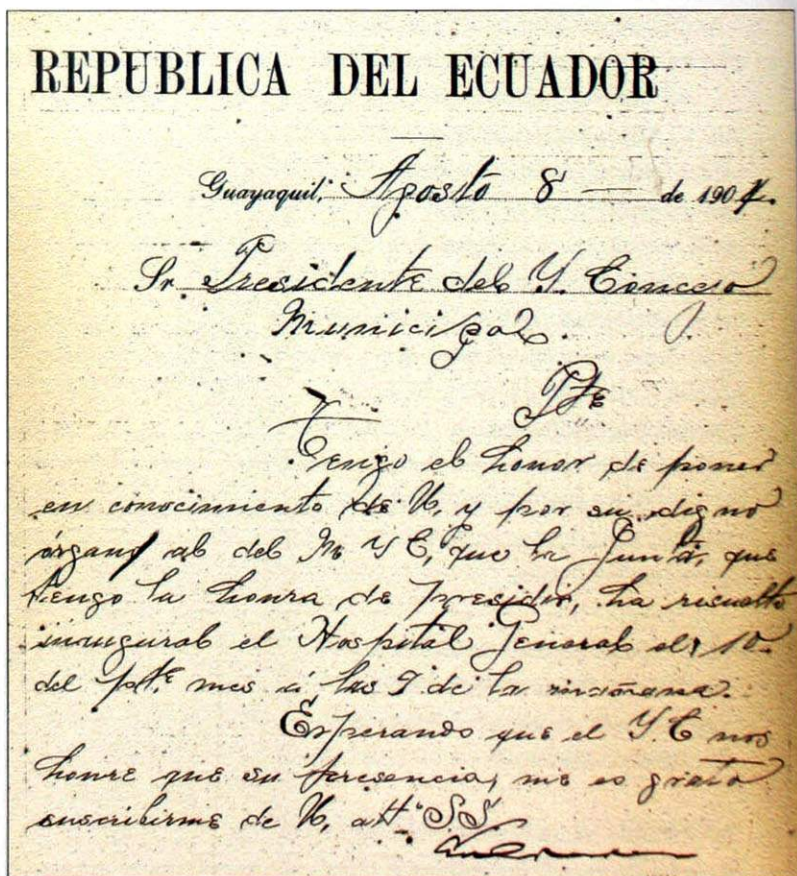 REPUBLICA DEL ECUADOR
Guayaquil, Agosto 8 — de 1904.
Sr. Presidente del Y. Concejo
Municipal.
Pte
Tengo el honor de poner
en conocimiento de U, y por su digno
órgano al del M Y C, que la Junta, que
tengo la honra de presidir, ha resuelto
inaugurar el Hospital General el 10
del pte mes á las 9 de la mañana.
Esperando que el Y. C nos
honre que su presencia, me es grato
suscribirme de U, att° SS.